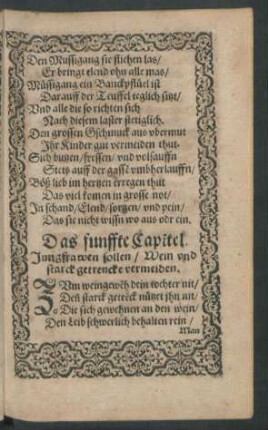 Den Mussigang sie fliehen las/
Er bringt elend ohn alle mas/
Müssigang ein Banckpflüel ist
Darauff der Teuffel teglich sitzt/
Vnd alle die so richten sich
Nach diesem laster stetiglich.
Den grossen Gschmuck aus vbermut
Ihr Kinder gut vermeiden thut.
Sich butzen/fressen/vnd volsauffn
Stets auff der gassē vmbherlauffn/
Böß lieb im hertzen erregen thut
Das viel komen in grosse not/
In schand/Elend/sorgen/vnd pein/
Das sie nicht wissn wo aus odr ein.
Das funffte Capitel
Jungfrawen sollen/Wein vnd
starck getrencke vermeiden.
Zvm weingewēh dein tochter nit/
Deñ starck getrēck nützet ihn nit/
Ja Die sich gewehnen an den wein/
Den Leib schwerlich behalten rein/
Man